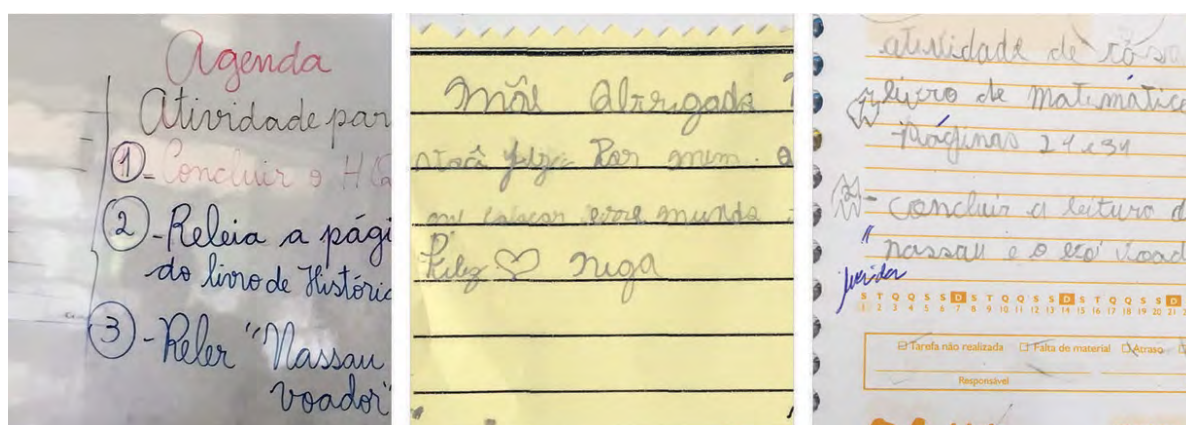 Agenda
Atividade par
1 - Concluir o H
2 - Releia a pági
do livro de Históric
3 - Reler "Nassau
voador"
Mãe Obrigada
Você fez Por mim.
mundo
Feliz ♡
atividade de
livro de Matemátic
Páginas 21 e 34
- concluir a leitura d
"nassau e o voad
S T Q Q S S D S T Q Q S S D S T Q Q S S D S
1 2 3 4 5 6 7 8 9 10 11 12 13 14 15 16 17 18 19 20 21
Tarefa não realizada Falta de material Atraso
Responsável